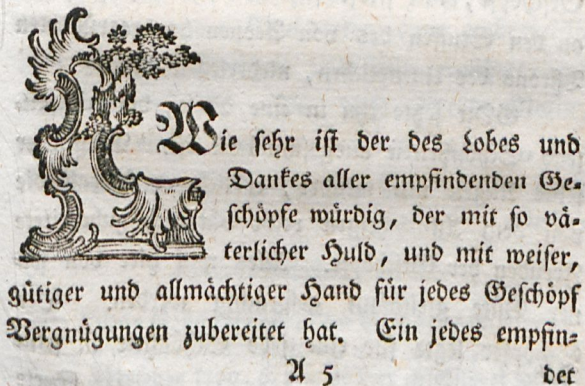 Wie ſehr iſt der des Lobes und
Dankes aller empfindenden Ge⸗
ſchöpfe würdig, der mit ſo vä⸗
terlicher Huld, und mit weiſer,
gütiger und allmächtiger Hand für jedes Geſchöpf
Vergnügungen zubereitet hat. Ein jedes empfin⸗
A 5 det